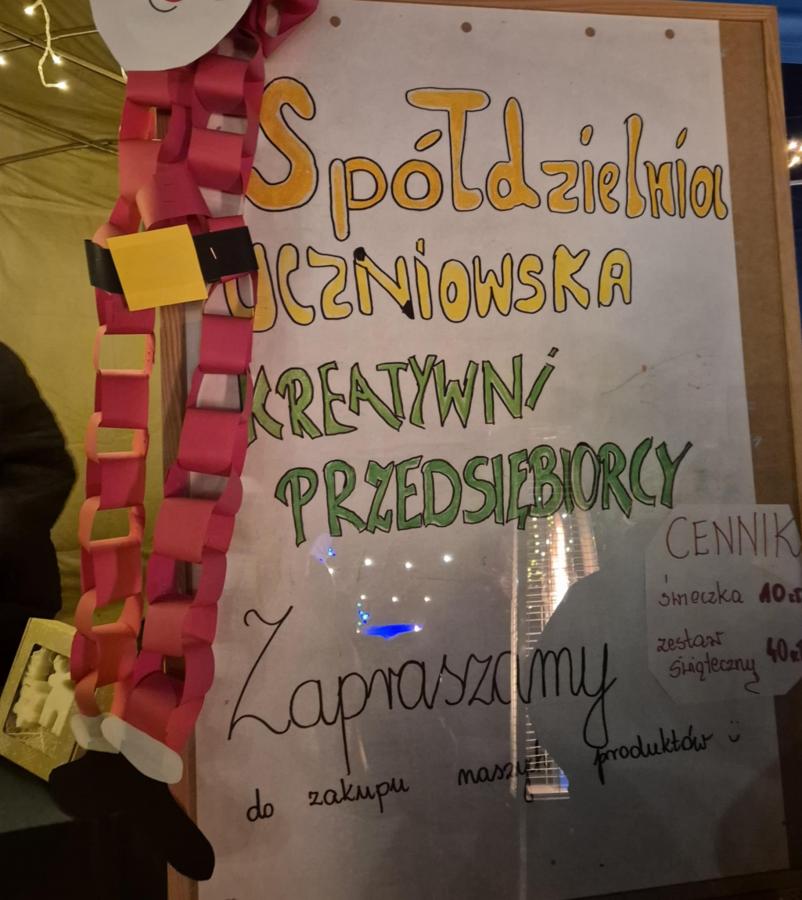 Spółdzielnia
UCZNIOWSKA
KREATYWNI
PRZEDSIĘBIORCY
CENNIK
świeczka 10 zł
zestaw
świąteczny 40 zł
Zapraszamy
do zakupu naszych produktów :)